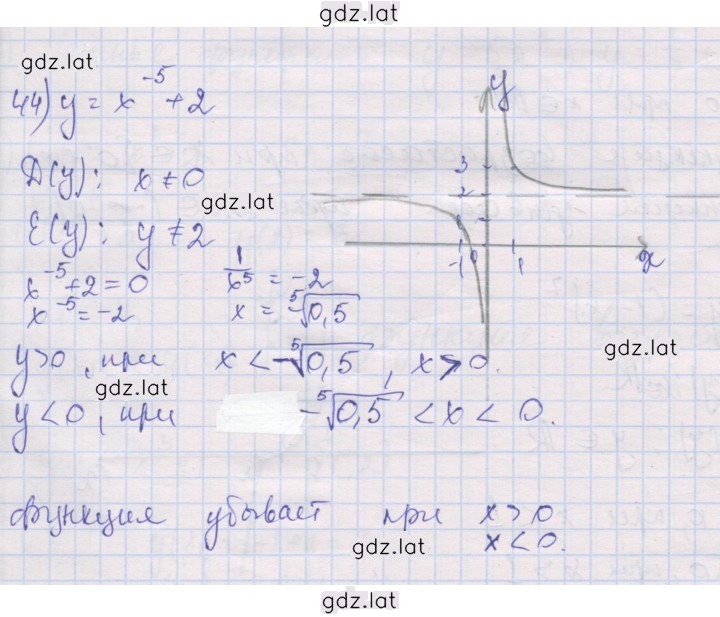 gdz.lat
gdz.lat
44) y = x^-5 + 2
Д(y): x ≠ 0
gdz.lat
E(y): y ≠ 2
x^-5 + 2 = 0
x^-5 = -2
1/x^5 = -2
x = -⁵√0,5
y
3
2
1
-1 0 1
x
y > 0, при x < -⁵√0,5, x > 0.
gdz.lat
gdz.lat
y < 0, при -⁵√0,5 < x < 0.
функция убывает при x > 0
x < 0.
gdz.lat
gdz.lat